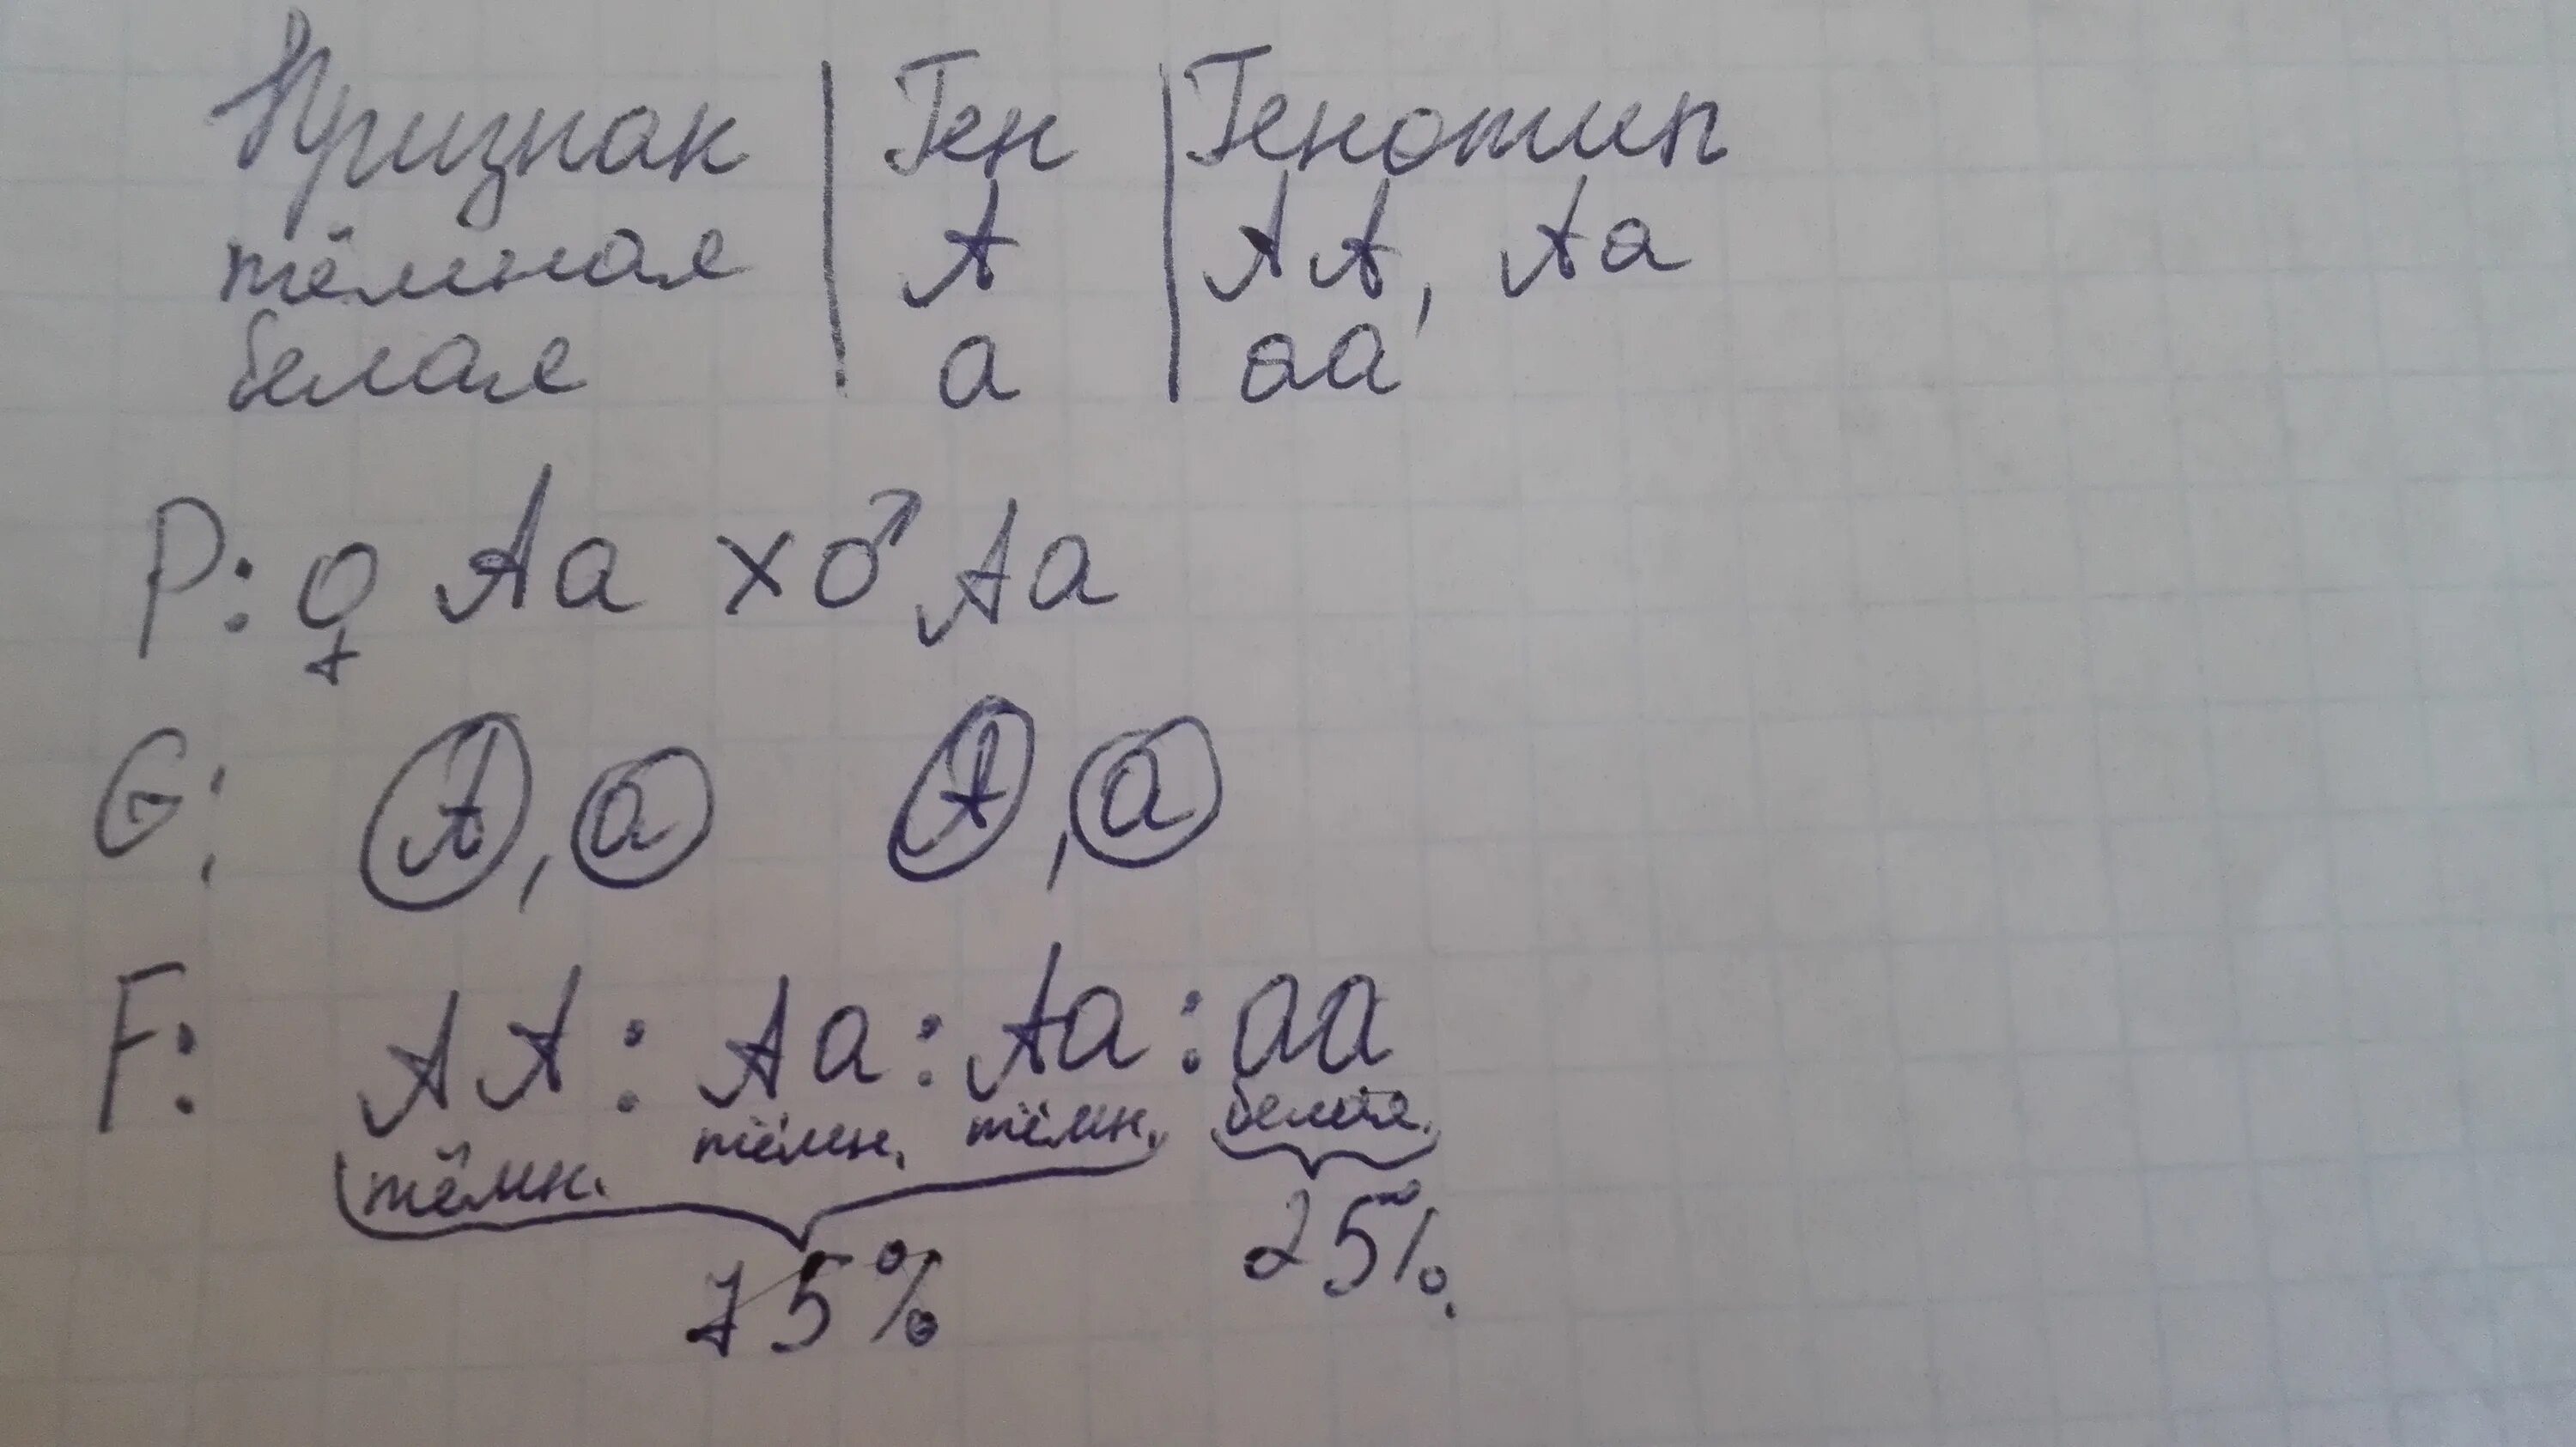 Признак | Ген | Генотип
тёмная | А | АА, Аа
белая | а | аа
P: ♀ Aa × ♂ Aa
G: A, a A, a
F: AA : Aa : Aa : aa
тёмн. тёмн. тёмн. белая.
75% 25%.